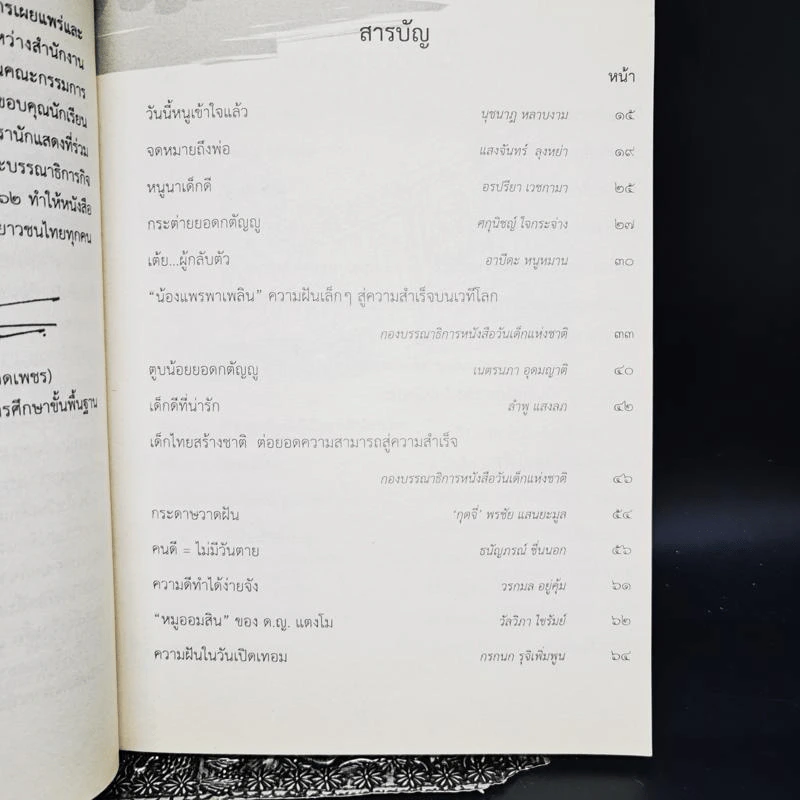 รเผยแพร่และ
หว่างสำนักงาน
นคณะกรรมการ
ขอบคุณนักเรียน
รานักแสดงที่ร่วม
ะบรรณาธิการกิจ
๖๒ ทำให้หนังสือ
ยาวชนไทยทุกคน
ดเพชร)
รศึกษาขั้นพื้นฐาน
สารบัญ
หน้า
วันนี้หนูเข้าใจแล้ว นุชนาฎ หลาบงาม ๑๕
จดหมายถึงพ่อ แสงจันทร์ ลุงหย่า ๑๙
หนูนาเด็กดี อรปรียา เวชกามา ๒๕
กระต่ายยอดกตัญญู ศกุนิชญ์ ใจกระจ่าง ๒๗
เต้ย...ผู้กลับตัว อาบีดะ หนูหมาน ๓๐
“น้องแพรพาเพลิน” ความฝันเล็กๆ สู่ความสำเร็จบนเวทีโลก
กองบรรณาธิการหนังสือวันเด็กแห่งชาติ ๓๓
ตูบน้อยยอดกตัญญู เนตรนภา อุดมญาติ ๔๐
เด็กดีที่น่ารัก ลำพู แสงลภ ๔๒
เด็กไทยสร้างชาติ ต่อยอดความสามารถสู่ความสำเร็จ
กองบรรณาธิการหนังสือวันเด็กแห่งชาติ ๔๖
กระดาษวาดฝัน ‘กุดจี่’ พรชัย แสนยะมูล ๕๔
คนดี = ไม่มีวันตาย ธนัญภรณ์ ชื่นนอก ๕๖
ความดีทำได้ง่ายจัง วรกมล อยู่คุ้ม ๖๑
“หมูออมสิน” ของ ด.ญ. แตงโม วัลวิภา ไชรัมย์ ๖๒
ความฝันในวันเปิดเทอม กรกนก รุจิเพิ่มพูน ๖๔